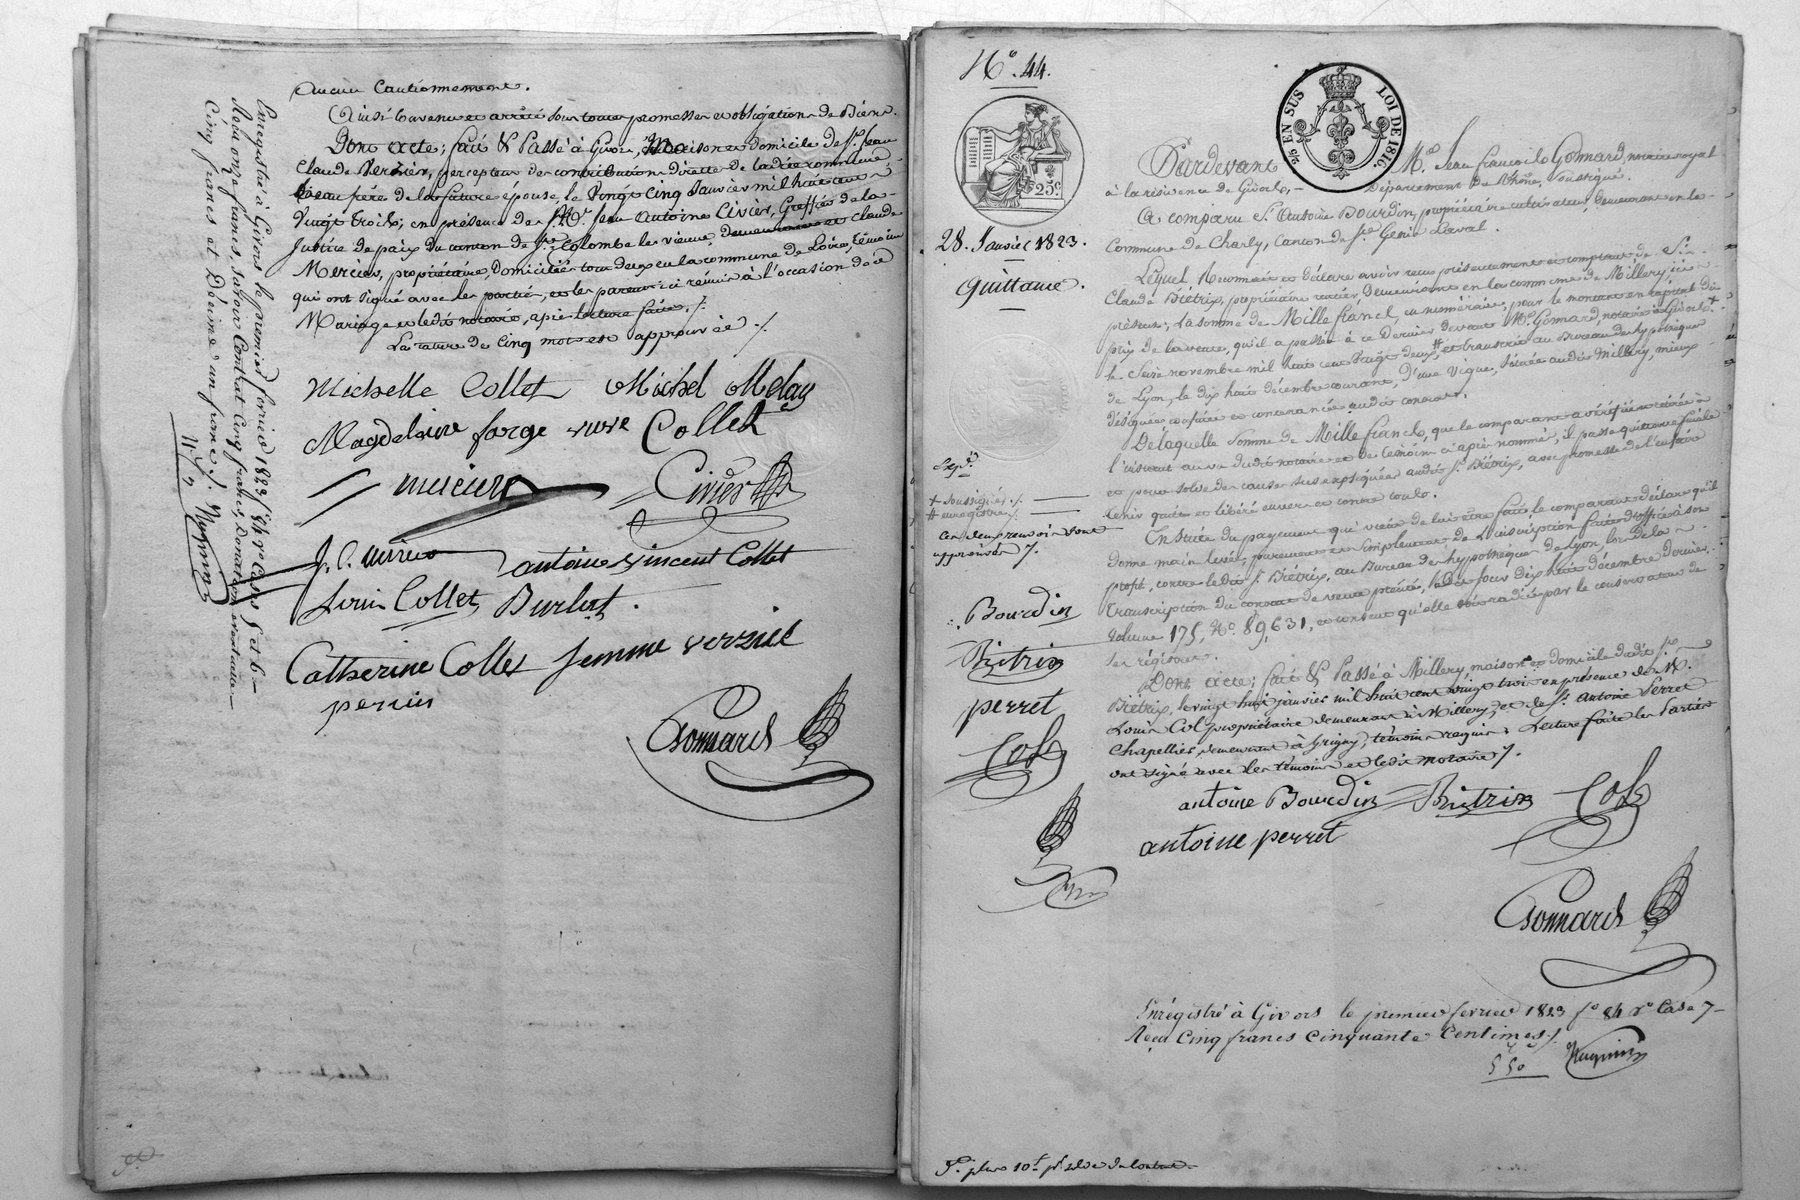 aucun Cautionnement.
Ainsi Convenu et arrêté sous toutes promesses et obligations de Biens.
Dont acte; fait & Passé à Givors, Maison et domicile de Sr. Jean
Claude Verzier, percepteur des contributions directes de ladite commune,
beau frère de la future épouse, le Vingt Cinq Janvier mil huit cent
Vingt Trois; en présence de Mr. Jean Antoine Civier, Greffier de la
Justice de paix du canton de Ste. Colombe les vienne, demeurant et Claude
Mercier, propriétaire, Domiciliés tous deux en la commune de Loire, témoins
qui ont signé avec les parties, et les parens ici réunis à l'occasion dudit
Mariage et ledit notaire, après lecture faite ./.
La rature de Cinq mots est approuvée ./.
Michelle Collet Michel Melay
Magdelaine farge veuve Collet
mercier Civier
J. C. antoine vincent Collet
Louis Collet Burlat.
Catherine Collet femme verzier
perrin
Gonnard
Enregistré à Givors le premier février 1823 f° 84 r° Cases 5 et 6
Reçu onze francs, savoir Contrat Cinq francs, Donation éventuelle
Cinq francs et Décime un franc ./.
N°. 44.
25 c
28. Janvier 1823.
Quittance.
2/10 EN SUS LOI DE 1816.
Pardevant Me. Jean françois Gonnard, notaire royal
à la résidence de Givors, Département du Rhône, soussigné.
A comparu Sr. Antoine Bourdin, propriétaire cultivateur, demeurant en la
Commune de Charly, Canton de St. Genis Laval.
Lequel, Reconnait et déclare avoir reçu présentement et comptant de Sr.
Claude Piétrix, propriétaire rentier, demeurant en la commune de Millery, ici
présent; La somme de Mille francs, en numéraire, pour le montant en capital du
prix de la vente, qu'il a passée à ce Dernier devant Me. Gonnard, notaire à Givors +
le Seize novembre mil huit cent Vingt deux, # et transcrite au Bureau des hypothèques
de Lyon, le dix huit décembre courant, D'une Vigne, située audit Millery, mieux
désignée confinée et contenancée audit contrat.
De laquelle Somme de Mille francs, que le comparant a vérifiée et retirée à
l'instant au vu dudit notaire et des témoins ci après nommés, il passe quittance finale
et pour solde des causes sus expliquées audit Sr. Piétrix, avec promesse de l'en faire
tenir quitte et libéré envers et contre tous.
En suite du payement qui vient de lui être fait, le comparant déclare qu'il
donne main levée, purement et simplement de l'inscription faite d'office à son
profit, contre ledit Sr. Piétrix, au Bureau des hypothèques de Lyon lors de la
transcription du contrat de vente précité, ledit jour dix huit décembre dernier,
Volume 175, N°. 89,631, et consent qu'elle soit radiée par le conservateur de
ses régistres.
Dont acte; fait & Passé à Millery, maison et domicile dudit Sr.
Piétrix, le vingt huit janvier mil huit cent vingt trois en présence de Sr.
Louis Col propriétaire demeurant à Millery, et de Sr. Antoine Perret
Chapellier, demeurant à Grigny, témoins requis. Lecture faite les Parties
ont signé avec les témoins et ledit notaire ./.
Exp.
+ soussigné ./.
# enregistrée ./.
Ces deux renvois sont
approuvés ./.
Bourdin
Piétrix
perret
Col
antoine Bourdin Piétrix Col
antoine perret
Gonnard
Enrégistré à Givors le premier février 1823 f° 84 r° Case 7
Reçu Cinq francs Cinquante Centimes ./.
5 50